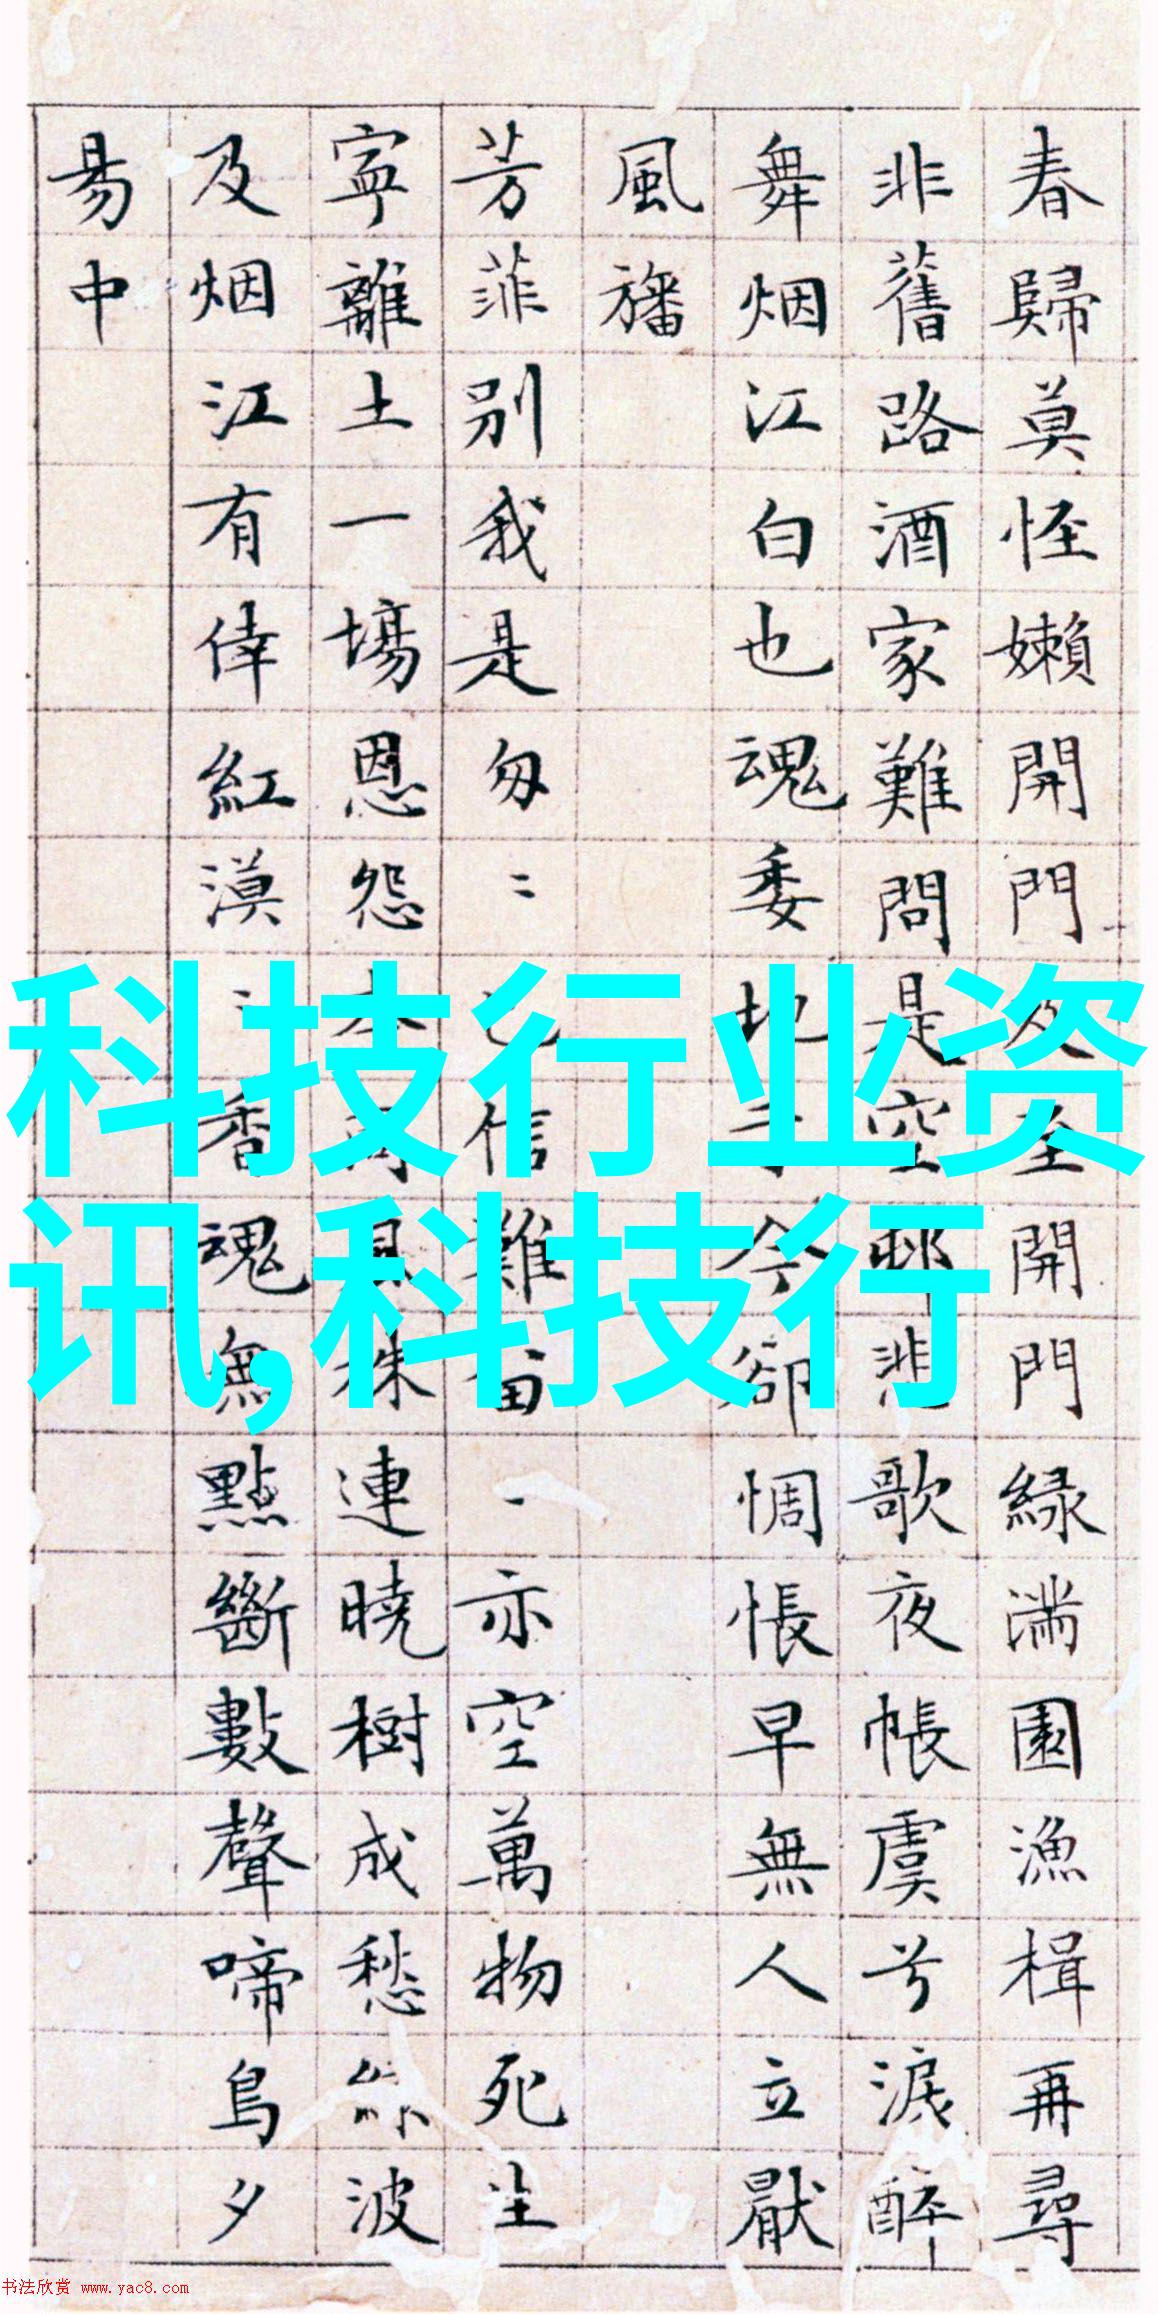 春歸莫怪嬾開門及至開門緑滿園漁楫再尋
非舊路酒家難問是空邨悲歌夜帳虞兮淚醉
舞烟江白也魂委地于今卻惆悵早無人立厭
風旛
芳菲別我是匆〻已信難留一亦空萬物死生
寧離土一場恩怨本同風株連曉樹成愁綠波
及烟江有倖紅漠〻香魂無點斷數聲啼鳥夕
易中
科技行业资
讯,科技行
书法欣赏 www.yac8.com